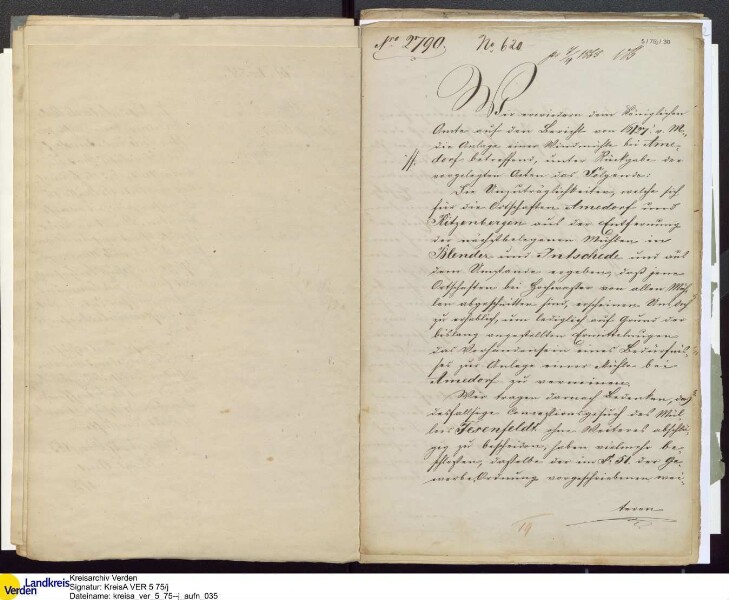 Nro 2790. No 620
5/75j/30
Wir erwiedern dem Königlichen
Amte auf den Bericht vom v. M.,
die Anlage einer Windmühle bei Ame-
dorf betreffend, unter Rückgabe der
vorgelegten Acten das Folgende:
Die Unzuträglichkeiten, welche sich
für die Ortschaften Amedorf und
Ritzenbergen aus der Entfernung
der nächstbelegenen Mühlen in
Blender und Intschede und aus
dem Umstande ergeben, daß jene
Ortschaften bei Hochwasser von allen Müh-
len abgeschnitten sind, erscheinen Uns doch
zu erheblich, um lediglich auf Grund der
bislang angestellten Ermittelungen
das Vorhandensein eines Bedürfnis-
ses zur Anlage einer Mühle bei
Amedorf zu verneinen.
Wir tragen darnach Bedenken, das
desfallsige Concessionsgesuch des Mül-
lers ohne Weiteres abschlä-
gig zu bescheiden, haben vielmehr be-
schlossen, dasselbe der im §. 51. der Ge-
werbe-Ordnung vorgeschriebenen wei-
teren
19
Landkreis
Verden
Kreisarchiv Verden
Signatur: KreisA VER 5 75/j
Dateiname: kreisa_ver_5_75--j_aufn_035